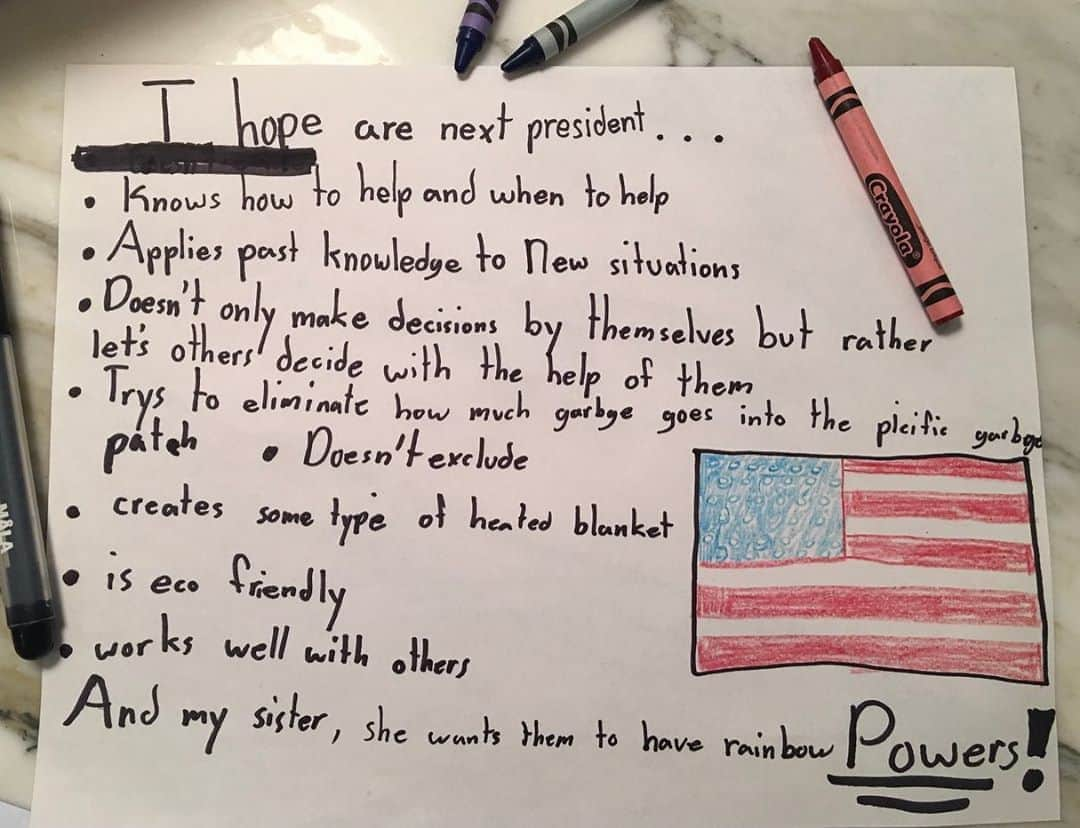 I hope are next president...
• Knows how to help and when to help
• Applies past knowledge to New situations
• Doesn't only make decisions by themselves but rather
let's others' decide with the help of them
• Trys to eliminate how much garbge goes into the plcific garbge
patch • Doesn't exclude
• creates some type of heated blanket
• is eco friendly
• works well with others
And my sister, she wants them to have rainbow Powers!
Crayola